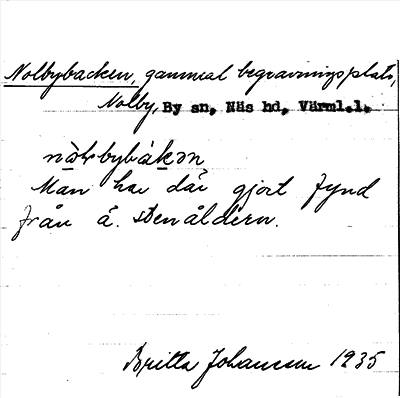 Nolbybacken, gammal begravningsplats,
Nolby, By sn, Näs hd, Värml.l.
nòlbybàkən
Man har där gjort fynd
från ä. stenåldern.
Britta Johansson 1935